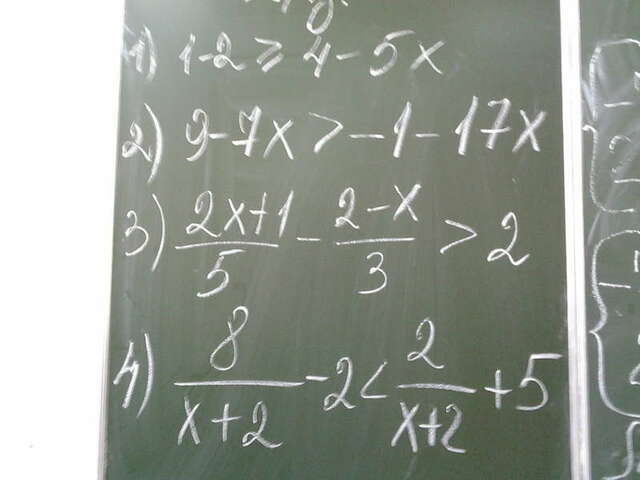 1) 1-2 ≥ 4-5x
2) 9-7x > -1-17x
3) \frac{2x+1}{5} - \frac{2-x}{3} > 2
4) \frac{8}{x+2} - 2 < \frac{2}{x+2} + 5